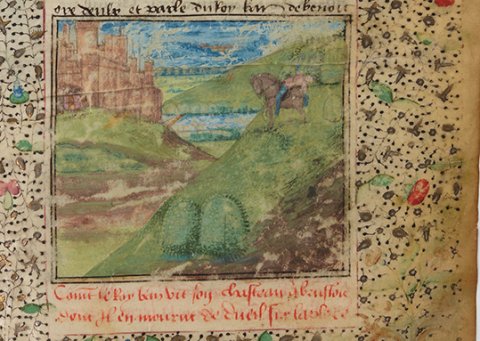 et parle du roy ban de benoit
Comt le Roy ban vit son chasteau q brusloit
dont il en mourut de dueil sur